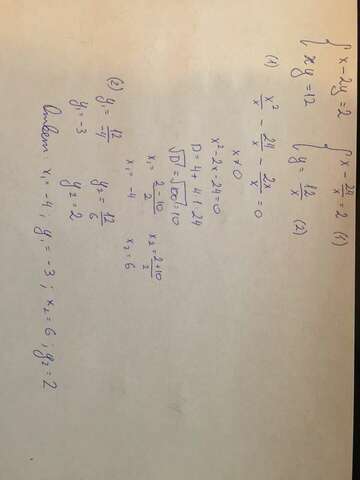 { x - 2y = 2 { x - 24/x = 2 (1)
{ xy = 12 { y = 12/x (2)
(1) x²/x - 24/x - 2x/x = 0
x ≠ 0
x² - 2x - 24 = 0
D = 4 + 4·1·24
√D = √100 = 10
x₁ = (2 - 10)/2 x₂ = (2 + 10)/2
x₁ = -4 x₂ = 6
(2) y₁ = 12/-4 y₂ = 12/6
y₁ = -3 y₂ = 2
Ответ: x₁ = -4; y₁ = -3; x₂ = 6; y₂ = 2